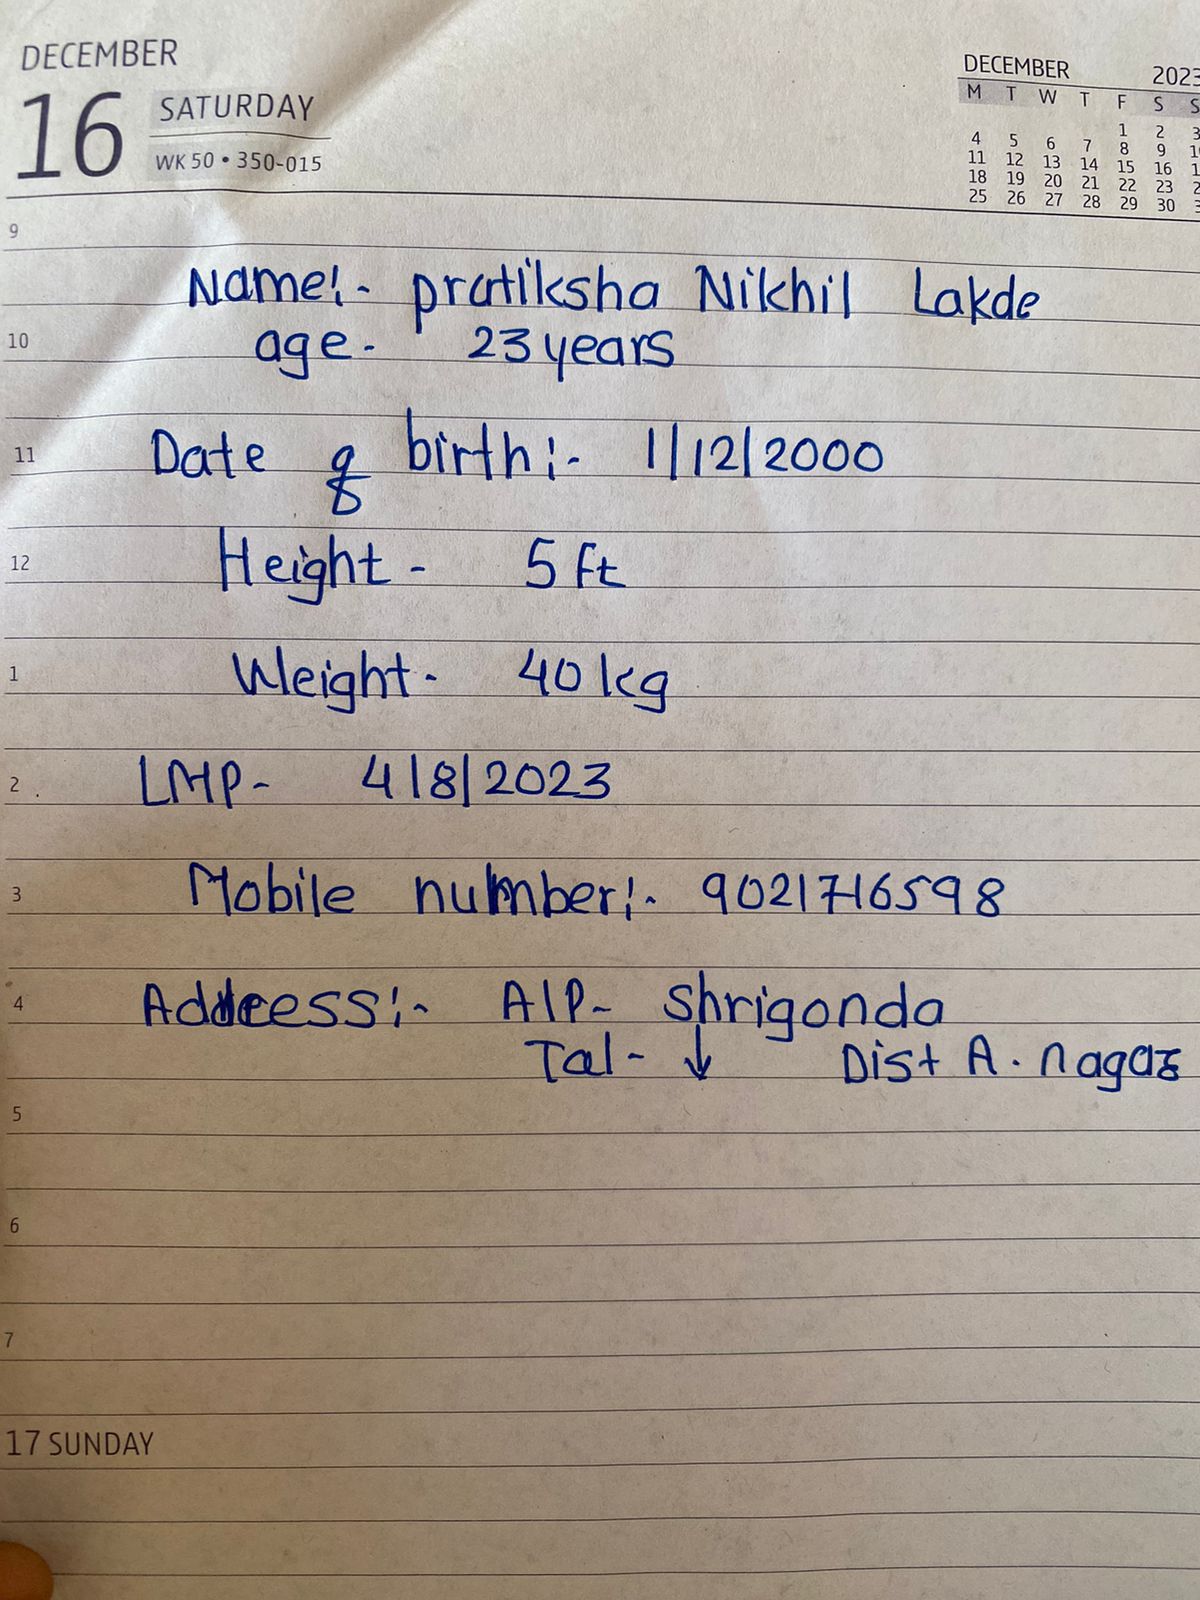 DECEMBER
16 SATURDAY
WK 50 • 350-015
DECEMBER 2023
M T W T F S S
1 2 3
4 5 6 7 8 9
11 12 13 14 15 16
18 19 20 21 22 23
25 26 27 28 29 30
9
Name:- pratiksha Nikhil Lakde
10 age- 23 years
11 Date of birth:- 1/12/2000
12 Height- 5 ft
1 Weight- 40 kg
2 LMP- 4/8/2023
3 Mobile number:- 9021716598
4 Address:- A/P- Shrigonda
Tal- ↓ Dist A. nagar
5
6
7
17 SUNDAY